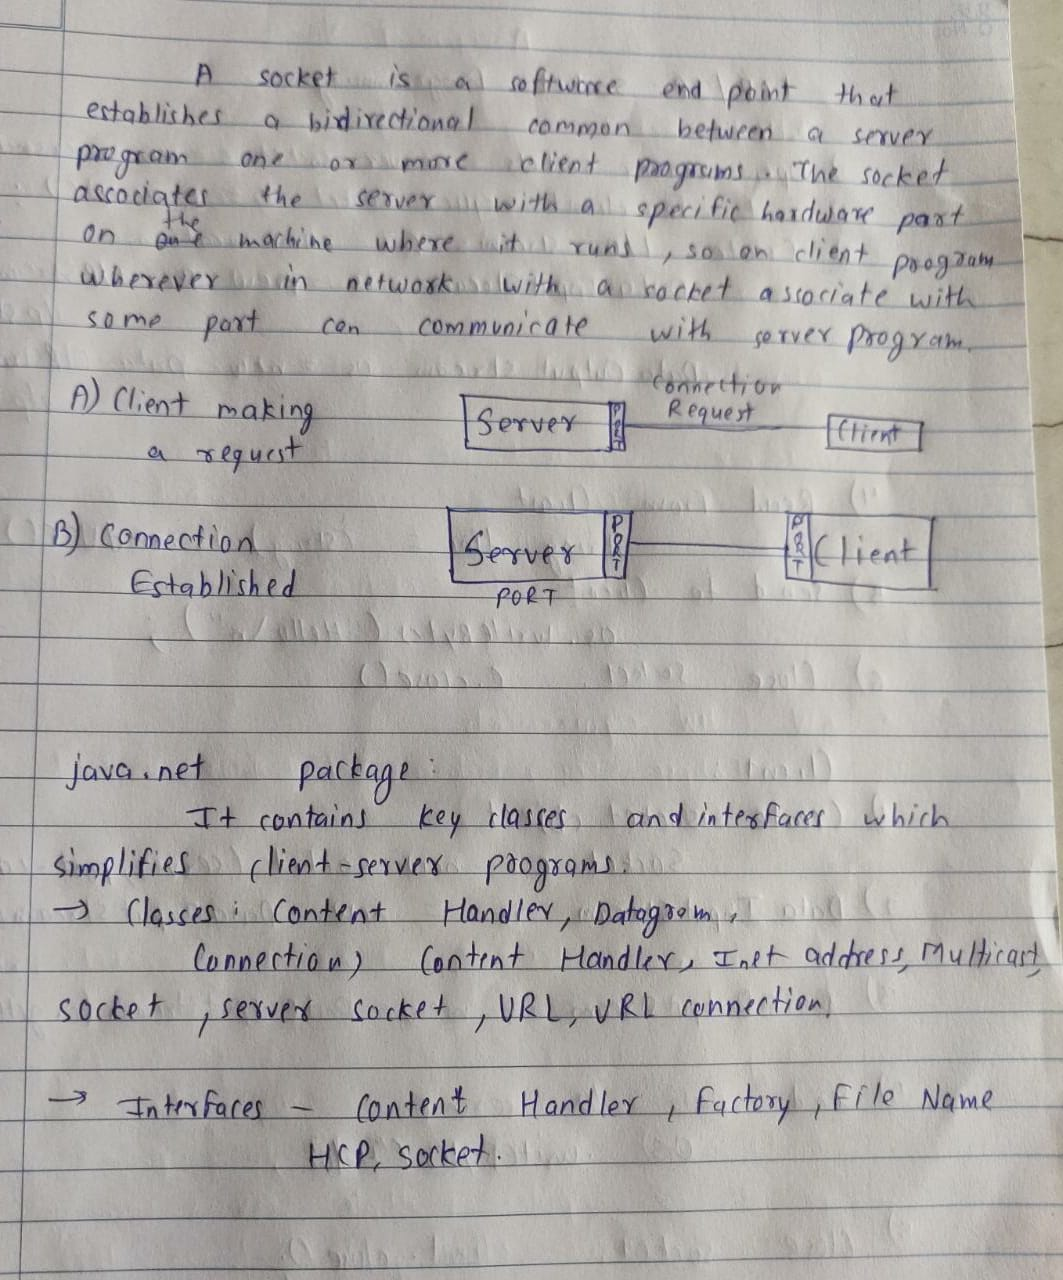 A socket is a software end point that
establishes a bidirectional common between a server
program one or more client programs. The socket
associates the server with a specific hardware part
on the machine where it runs, so on client program
wherever in network with a socket associate with
some part can communicate with server program.
A) Client making
a request
Server PORT
Connection
Request
Client
B) Connection
Established
Server PORT
PORT
PORT Client
java.net package:
It contains key classes and interfaces which
simplifies client-server programs.
→ Classes: Content Handler, Datagram,
Connection) Content Handler, Inet address, Multicast
socket, server socket, URL, URL connection,
→ Interfaces - Content Handler, Factory, File Name
socket.